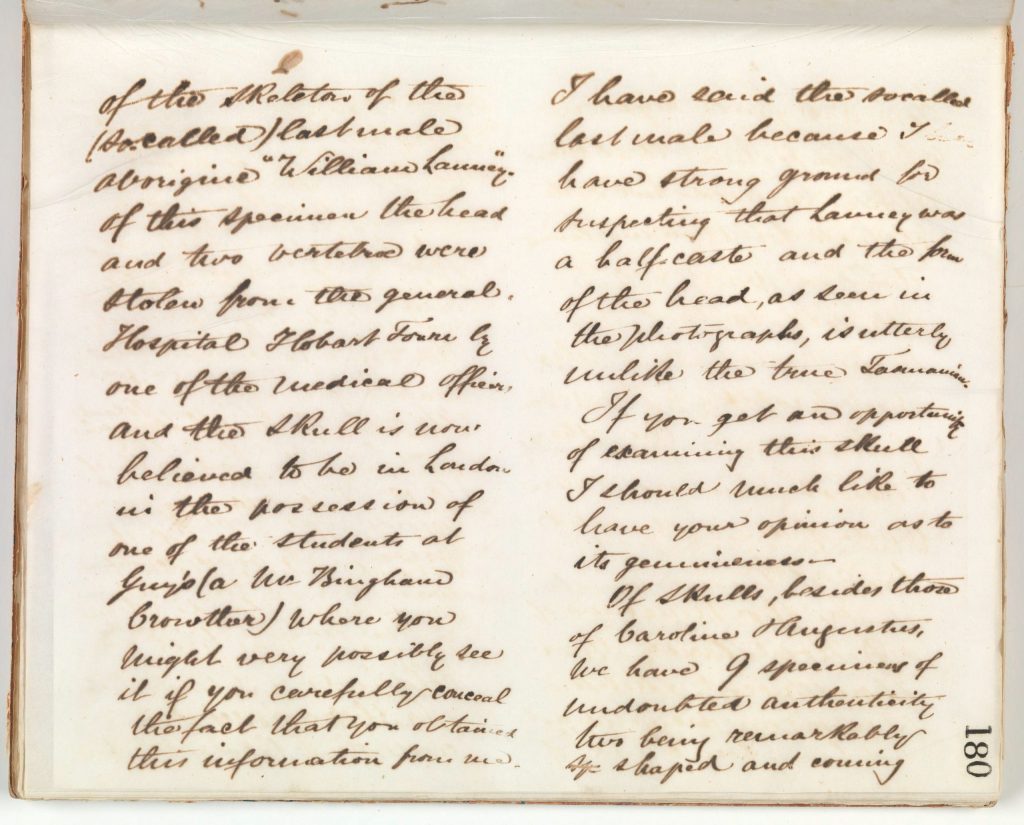 of the skeleton of the
(so.called) last male
aborigine "William Lanney".
of this specimen the head
and two vertebrae were
stolen from the general
Hospital Hobart Town by
one of the medical officers
and the skull is now
believed to be in London
in the possession of
one of the students at
Guy's (a Mr Bingham
Crowther) where you
might very possibly see
it if you carefully conceal
the fact that you obtained
this information from me.
I have said the so called
last male because I
have strong ground for
suspecting that Lanney was
a half-caste and the form
of the head, as seen in
the photographs, is utterly
unlike the true Tasmanian.
If you get an opportunity
of examining this skull
I should much like to
have your opinion as to
its genuineness—
Of skulls, besides those
of Caroline & Augustus,
we have 9 specimens of
undoubted authenticity
two being remarkably
shaped and coming
180